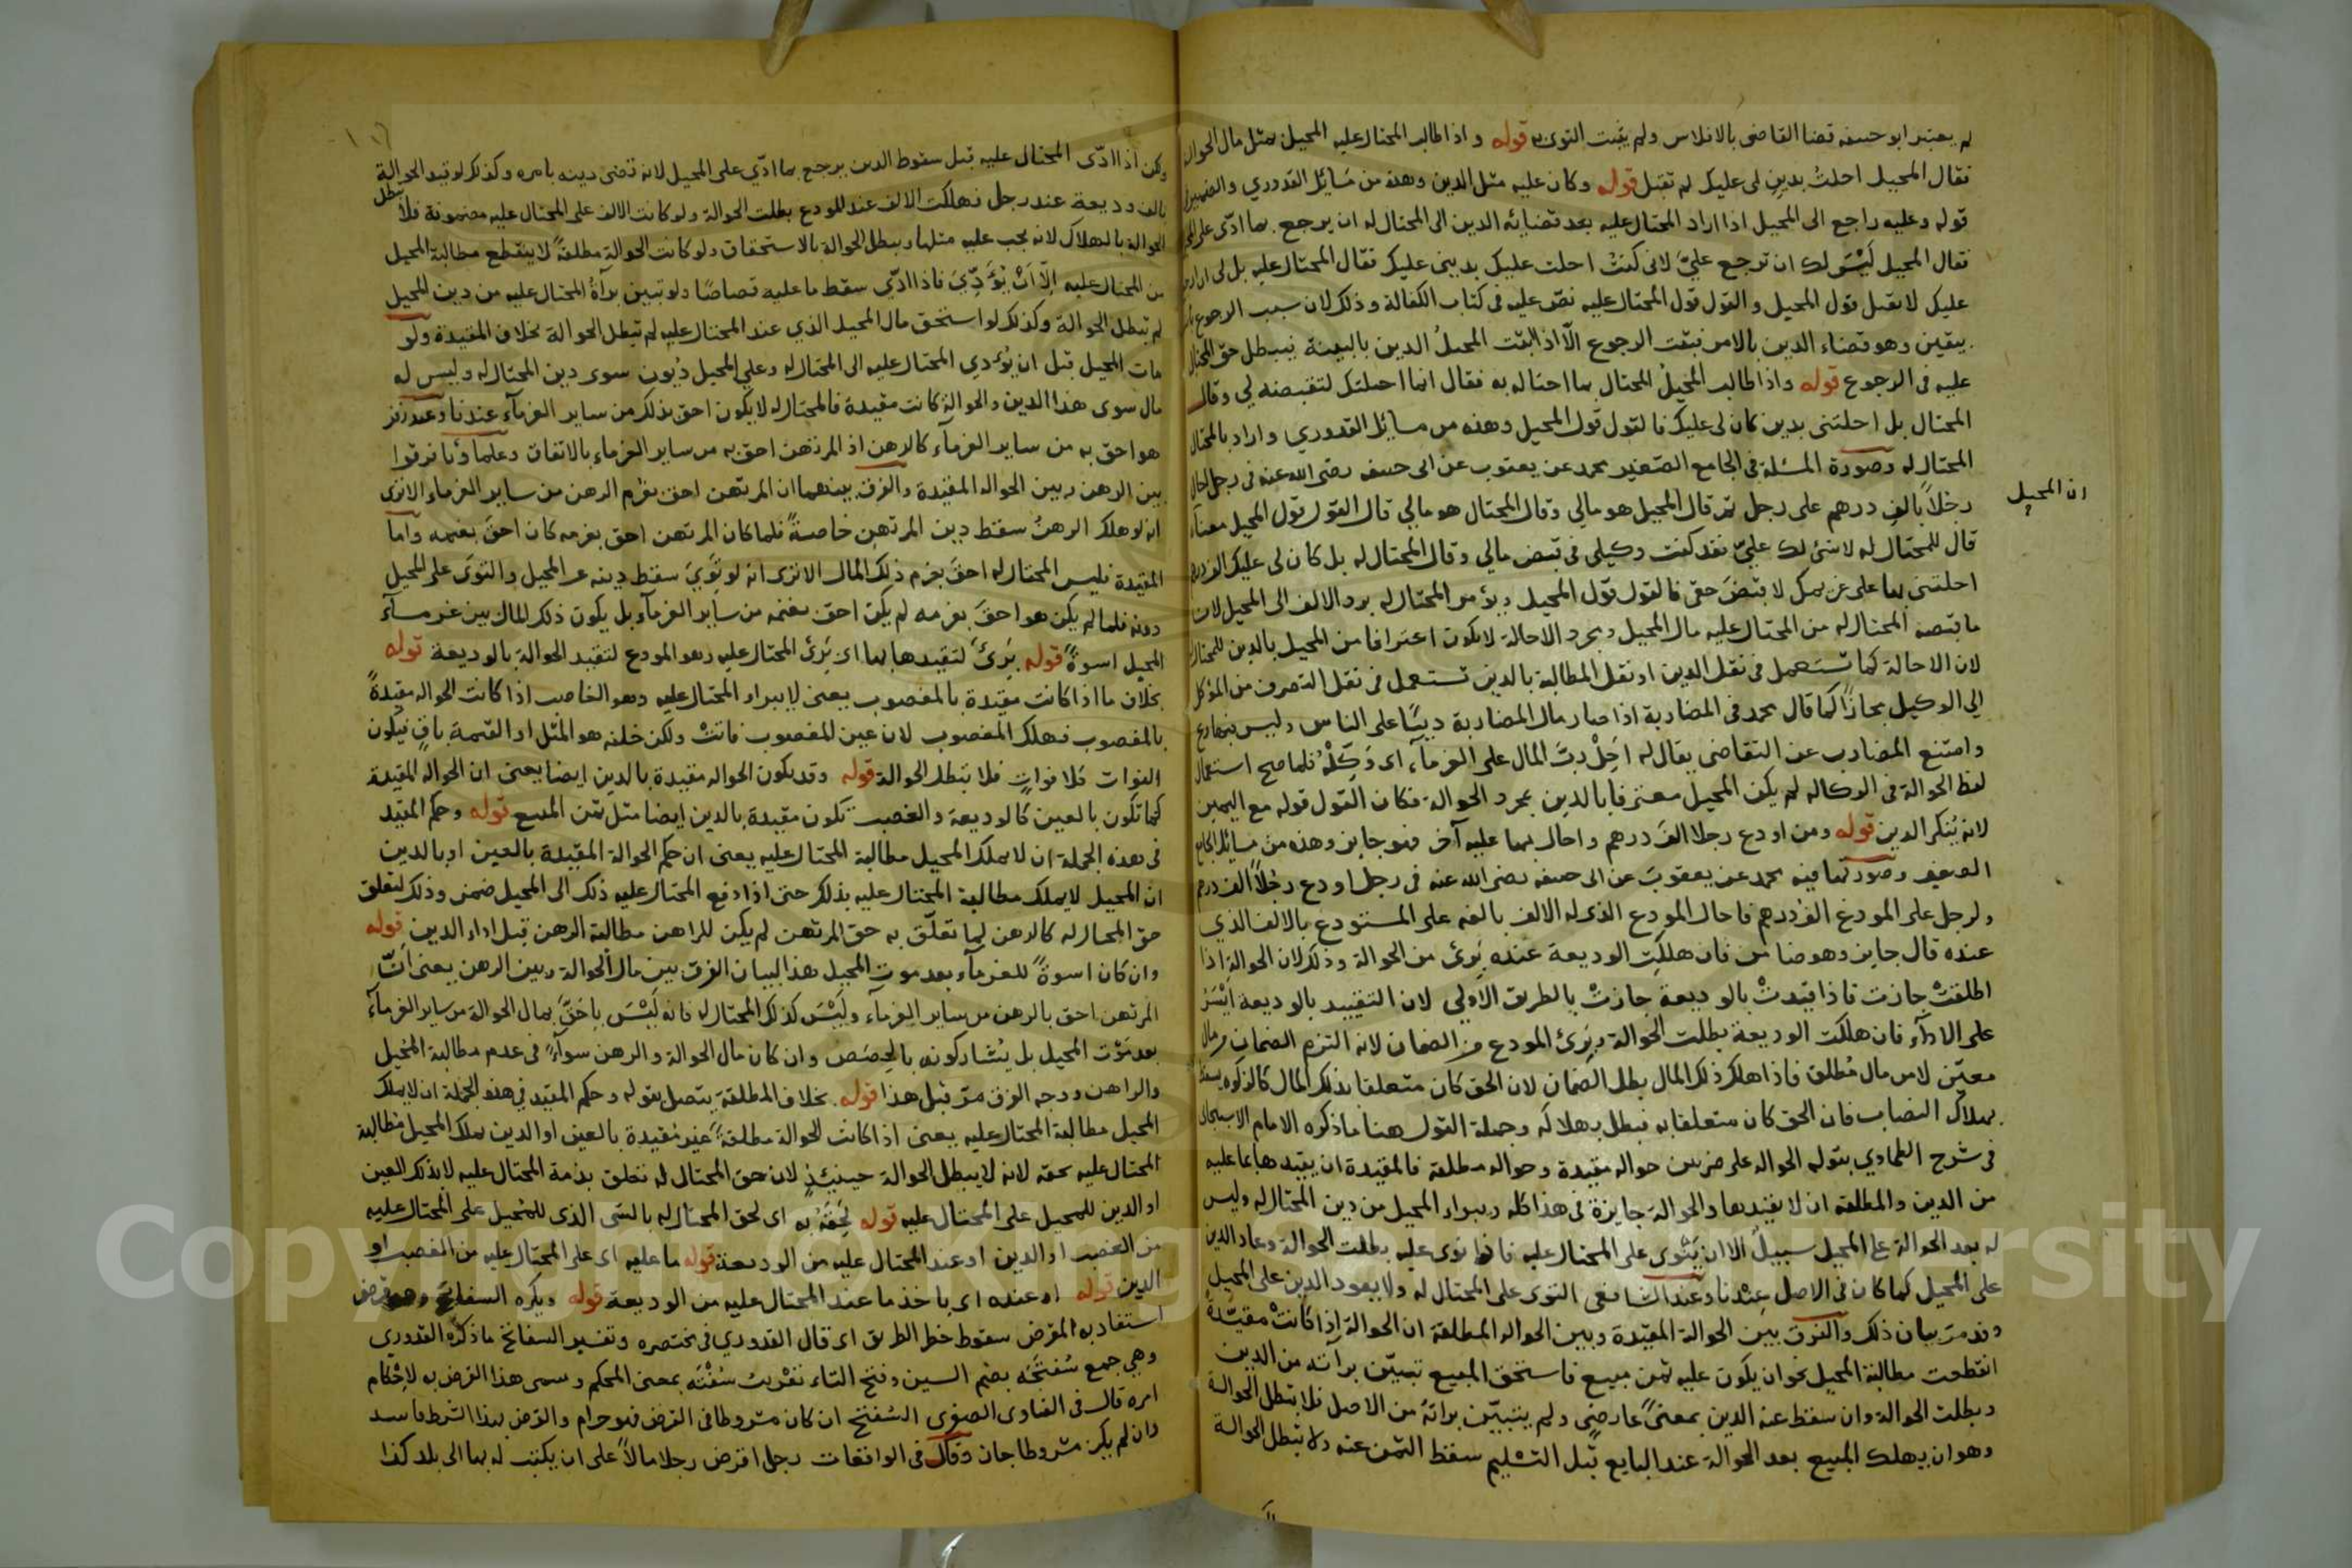 لم يعتبر ابو حنيفه قضا القاضى بالافلاس ولم يثبت التوى به قوله واذا طالب المحتال عليه المحيل بمثل مال الحوالة
فقال المحيل احلتُ بدينٍ لى عليك لم تقبل قوله وكان عليه مثل الدين وهذه من مسَائل القدوري والضمير فى
قوله وعليه راجع الى المحيل اذا اراد المحتال عليه بعد قضايه الدين الى المحتال له ان يرجع بما ادّى على
فقال المحيل لَيْسَ لك ان ترجع عليَّ لانى كنتُ احلت عليك بدينى عليك فقال المحتال عليه بل لى ان ارجع
عليك لا تقبل قول المحيل والقول قول المحتال عليه نصّ عليه فى كتاب الكفالة وذلك لان سبب الرجوع
بيقين وهو قضاء الدين بالامر فيثبت الرجوع الّا اذا اثبت المحيلُ الدين بالبينة فيبطل حق المحتال
عليه فى الرجوع قوله واذا طالب المحيلُ المحتال بما احتاله به فقال انما احلتك لتقبضه لي وقال
المحتال بل احلتنى بدين كان لى عليك فالقول قول المحيل وهذه من مسايل القدوري واراد بالمحتال
المحتال له وصورة المسئلة فى الجامع الصّغير محمد عن يعقوب عن ابى حنيفه رضى الله عنه فى رجل احال
رجلاً بالفِ درهم على رجل ثم قال المحيل هو مالي وقال المحتال هو مالي قال القول قول المحيل معناه
ان المحيل
قال للمحتال له لا شئ لك عليّ فقد كنت وكيلى فى قبض مالي وقال المحتال له بل كان لى عليك الف درهم
احلتنى بها على غريمك لا قبضَ حقى فالقول قول المحيل ويؤمر المحتال له برد الالف الى المحيل لان
ما قبضه المحتال له من المحتال عليه مال المحيل وبجرد الاحالة لا يكون اعترافا من المحيل بالدين للمحتال له
لان الاحالة كما تستعمل فى نقل الدين او نقل المطالبة بالدين تستعمل فى نقل التصرف من المؤكل
الى الوكيل مجازًا كما قال محمد فى المضاربة اذا صار مال المضاربة دينًا على الناس وليس فيها ربح
وامتنع المضارب عن التقاضى يقال له احِلْ ربّ المال على الغرمآء اى وَكِّلْهُ فلما صح استعمال
لفظ الحوالة فى الوكاله لم يكن المحيل معترفا بالدين بمجرد الحوالة فكان القول قوله مع اليمين
لانه يُنكر الدين قوله ومن اودع رجلا الفَ درهم واحال بها عليه آخر فهو جايز وهذه من مسائل الجامع
الصغير وصورتها فيه محمد عن يعقوبَ عن ابى حنيفه رضى الله عنه فى رجل اودع رجلًا الف درهم
ولرجل على المودع الف درهم فاحال المودع الذى له الالف بالفه على المستودع بالالف الذي
عنده قال جايز وهو ضامن فان هلكت الوديعة عنده بَرِئ من الحوالة وذلك لان الحوالة اذا
اطلقتْ جازت فاذا قيدتْ بالوديعة جازتْ بالطريق الاَولى لان التقييد بالوديعة اَيْسَرُ
على الادآء فان هلكت الوديعة بطلت الحوالة وبَرِئ المودع من الضمان لانه التزم الضمان من مال
معيّن لا من مال مُطلق فاذا هلك ذلك المال بطل الضمان لان الحق كان متعلقا بذلك المال كالزكوه يسقط
بهلاك النصاب فان الحق كان متعلقا به فبطل بهلاكه وجملة القول هنا ما ذكره الامام الاسبيجابى
فى شرح الطحاوي بقوله الحواله على ضربين حواله مقيدة وحواله مطلقة فالمقيدة ان يقيدها بما عليه
من الدين والمطلقة ان لا يقيدها والحوالة جايزة فى هذا كله ويبراء المحيل من دين المحتال له وليس
له بعد الحوالة على المحيل سبيلٌ الا ان يَتْوى على المحتال عليه فاذا توى عليه بطلت الحوالة وعاد الدين
على المحيل كما كان فى الاصل عِنْدنا وعند الشافعى التوى على المحتال له ولا يعود الدين على المحيل
وقد مرّ بيان ذلك والفرق بين الحوالة المقيّدة وبين الحواله المطلقة ان الحوالة اذا كانتْ مقيّدةً
انقطعت مطالبة المحيل نحو ان يكون عليه ثمن مبيع فاستحق المبيع تبيّن برآته من الدين
وبطلت الحوالة وان سقط عنه الدين بمعنًى عارضٍ ولم يتبيّن براته من الاصل فلا تبطل الحوالة
وهو ان يهلك المبيع بعد الحوالة عند البايع قبل التسْليم سقط الثمن عنه ولا تبطل الحوالة
ولكن اذا ادّى المحتال عليه قبل سقوط الدين يرجع بما ادّي على المحيل لانه قضى دينه بامره وكذلك لو قيد الحوالة
بالف وديعة عند رجل فهلكت الالف عند المودع بطلت الحوالة ولو كانت الالف على المحتال عليه مضمونة فلا تبطل
الحوالة بالهلاك لانه يجب عليه مثلها وببطل الحوالة بالاستحقاق ولو كانت الحوالة مطلقةً لا ينقطع مطالبة المحيل
من المحتال عليه اِلّا اَنْ يُؤَدّيَ فاذا ادّي سقط ما عليه قصاصًا ولو تبين برآةُ المحتال عليه من دين المحيل
لم تبطل الحوالة وكذلك لو استحق مال المحيل الذي عند المحتال عليه لم تبطل الحوالة بخلاف المقيدة ولو
مات المحيل قبل ان يُؤدي المحتال عليه الى المحتال له وعلى المحيل دُيون سوى دين المحتال له وليس له
مال سوى هذا الدين والحوالة كانت مقيدة فالمحتال له لا يكون احق بذلك من ساير الغرمآء عندنا وعند زفر
هو احق به من ساير الغرمآء كالرهن اذ المرتهن احق به من ساير الغرماء بالاتفاق وعلماؤنا فرقوا
بين الرهن وبين الحواله المقيدة والفرق بينهما ان المرتهن احق بغرم الرهن من ساير الغرماء الا ترى
انه لو هلك الرهنُ سقط دين المرتهِن خاصةً فلما كان المرتهن احق بغرمه كان احقّ بغنمه واما
المقيدة فليس المحتال له احقّ بغرم ذلك المال الا ترى انه لو تَوِيَ سقط دينه عن المحيل والتوَى على المحيل
دونه فلما لم يكن هو احقّ بغرمه لم يكن احق بغنمه من ساير الغرمآء بل يكون ذلك المال بين غرمآء
المحيل اسوةً قوله بَرِئ لتقيدها بها اى بَرِئ المحتال عليه وهو المودع لتقيد الحوالة بالوديعة قوله
بخلاف ما اذا كانت مقيدة بالمغصوب يعنى لا يبراء المحتال عليه وهو الغاصب اذا كانت الحواله مقيدةً
بالمغصوب فهلك المغصوب لان عين المغصوب فاتتْ ولكن خلفه هو المثل او القيمة باقٍ فيكون
الفوات كلا فواتٍ فلا تبطل الحوالة قوله وقد يكون الحواله مقيدة بالدين ايضا يعنى ان الحواله المقيدة
كما تكون بالعين كالوديعة والغصب تكون مقيدة بالدين ايضا مثل ثمن المبيع قوله وحكم المقيد
فى هذه الجملة ان لا يملك المحيل مطالبة المحتال عليه يعنى ان حكم الحوالة المقيدة بالعين او بالدين
ان المحيل لا يملك مطالبة المحتال عليه بذلك حتى اذا دفع المحتال عليه ذلك الى المحيل ضمن وذلك لتعلق
حق المحتال له كالرهن لِما تعلّق به حق المرتهن لم يكن للراهن مطالبة الرهن قبل اداء الدين قوله
وان كان اسوةً للغرمآء بعد موت المحيل هذا لبيان الفرق بين مال الحوالة وبين الرهن يعنى انّ
المرتهن احق بالرهن من ساير الغرمآء ولَيْسَ كذلك المحتال له فانه لَيْسَ باحَقَّ بمال الحوالة من ساير الغرمآء
بعد مَوْت المحيل بل يُشاركونه بالحِصَص وان كان مال الحوالة والرهن سواءً فى عدم مطالبة المُحيل
والراهن ووجه الفرق مرّ قبل هذا قوله بخلاف المطلقة يتصل بقوله وحكم المقيد فى هذه الجملة ان لا يملك
المحيل مطالبة المحتال عليه يعنى اذا كانت الحوالة مطلقةً غير مُقيدة بالعين او الدين يملك المحيل مُطالبة
المحتال عليه بحقه لانه لا يبطل الحوالة حينئذٍ لان حق المحتال له تعلق بذمة المحتال عليه لا بذلك العين
او الدين للمحيل على المُحتال عليه قوله لحقه به اى لحق المحتال له بالشى الذى للمُحيل على المُحتال عليه
من الغصب او الدين او عند المحتال عليه من الوديعة قوله ما عليه اى على المحتال عليه من الغصب او
الدين قوله او عنده اى باخذ ما عند المحتال عليه من الوديعة قوله ويكره السفاتج وهو قرض
استفاد به المقرض سقوط خطر الطريق اى قال القدوري فى مختصره وتفسير السفاتج ما ذكره القدوري
وهي جمع سُفتَجَه بضم السين وفتح التاء تعْريب سُفْتَه بمعنى المُحكم وسمى هذا القرض به لاِحْكام
امره قال فى الفتاوى الصغرى السُفتج ان كان مشروطا فى القرض فهو حرام والقرض بهذا الشرط فاسد
وان لم يكن مشروطا جاز وقال فى الواقعات رجل اقرض رجلا مالاً على ان يكتب له بها الى بلد كذا
Copyright © King Saud University